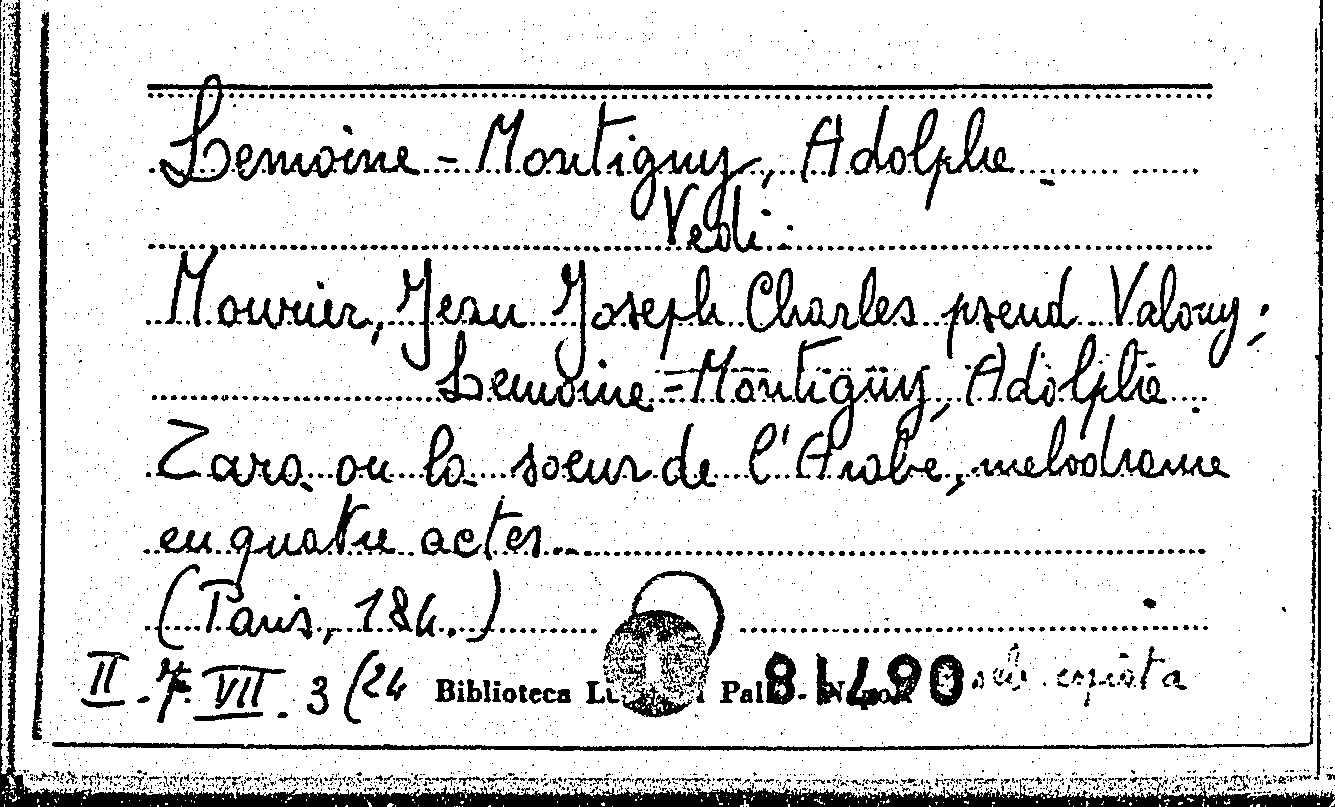 Lemoine-Montiguy, Adolphe.
Vedi:
Mourier, Jean Joseph Charles pseud Valory;
Lemoine=Montiguy, Adolphe.
Zara ou la soeur de l'Arabe, melodrame
en quatre actes..
(Paris, 184.)
II. VII. 3 (24 Biblioteca 81490 copista